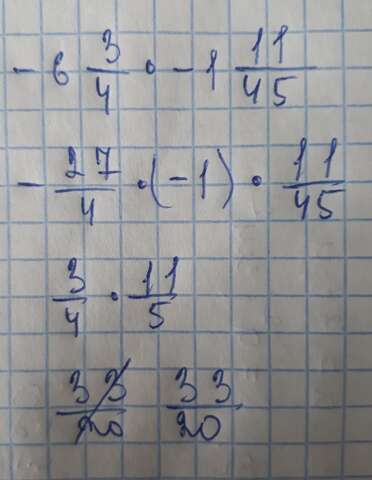 - 6 3/4 • - 1 11/45
- 27/4 • (-1) • 11/45
3/4 • 11/5
33/20 33/20